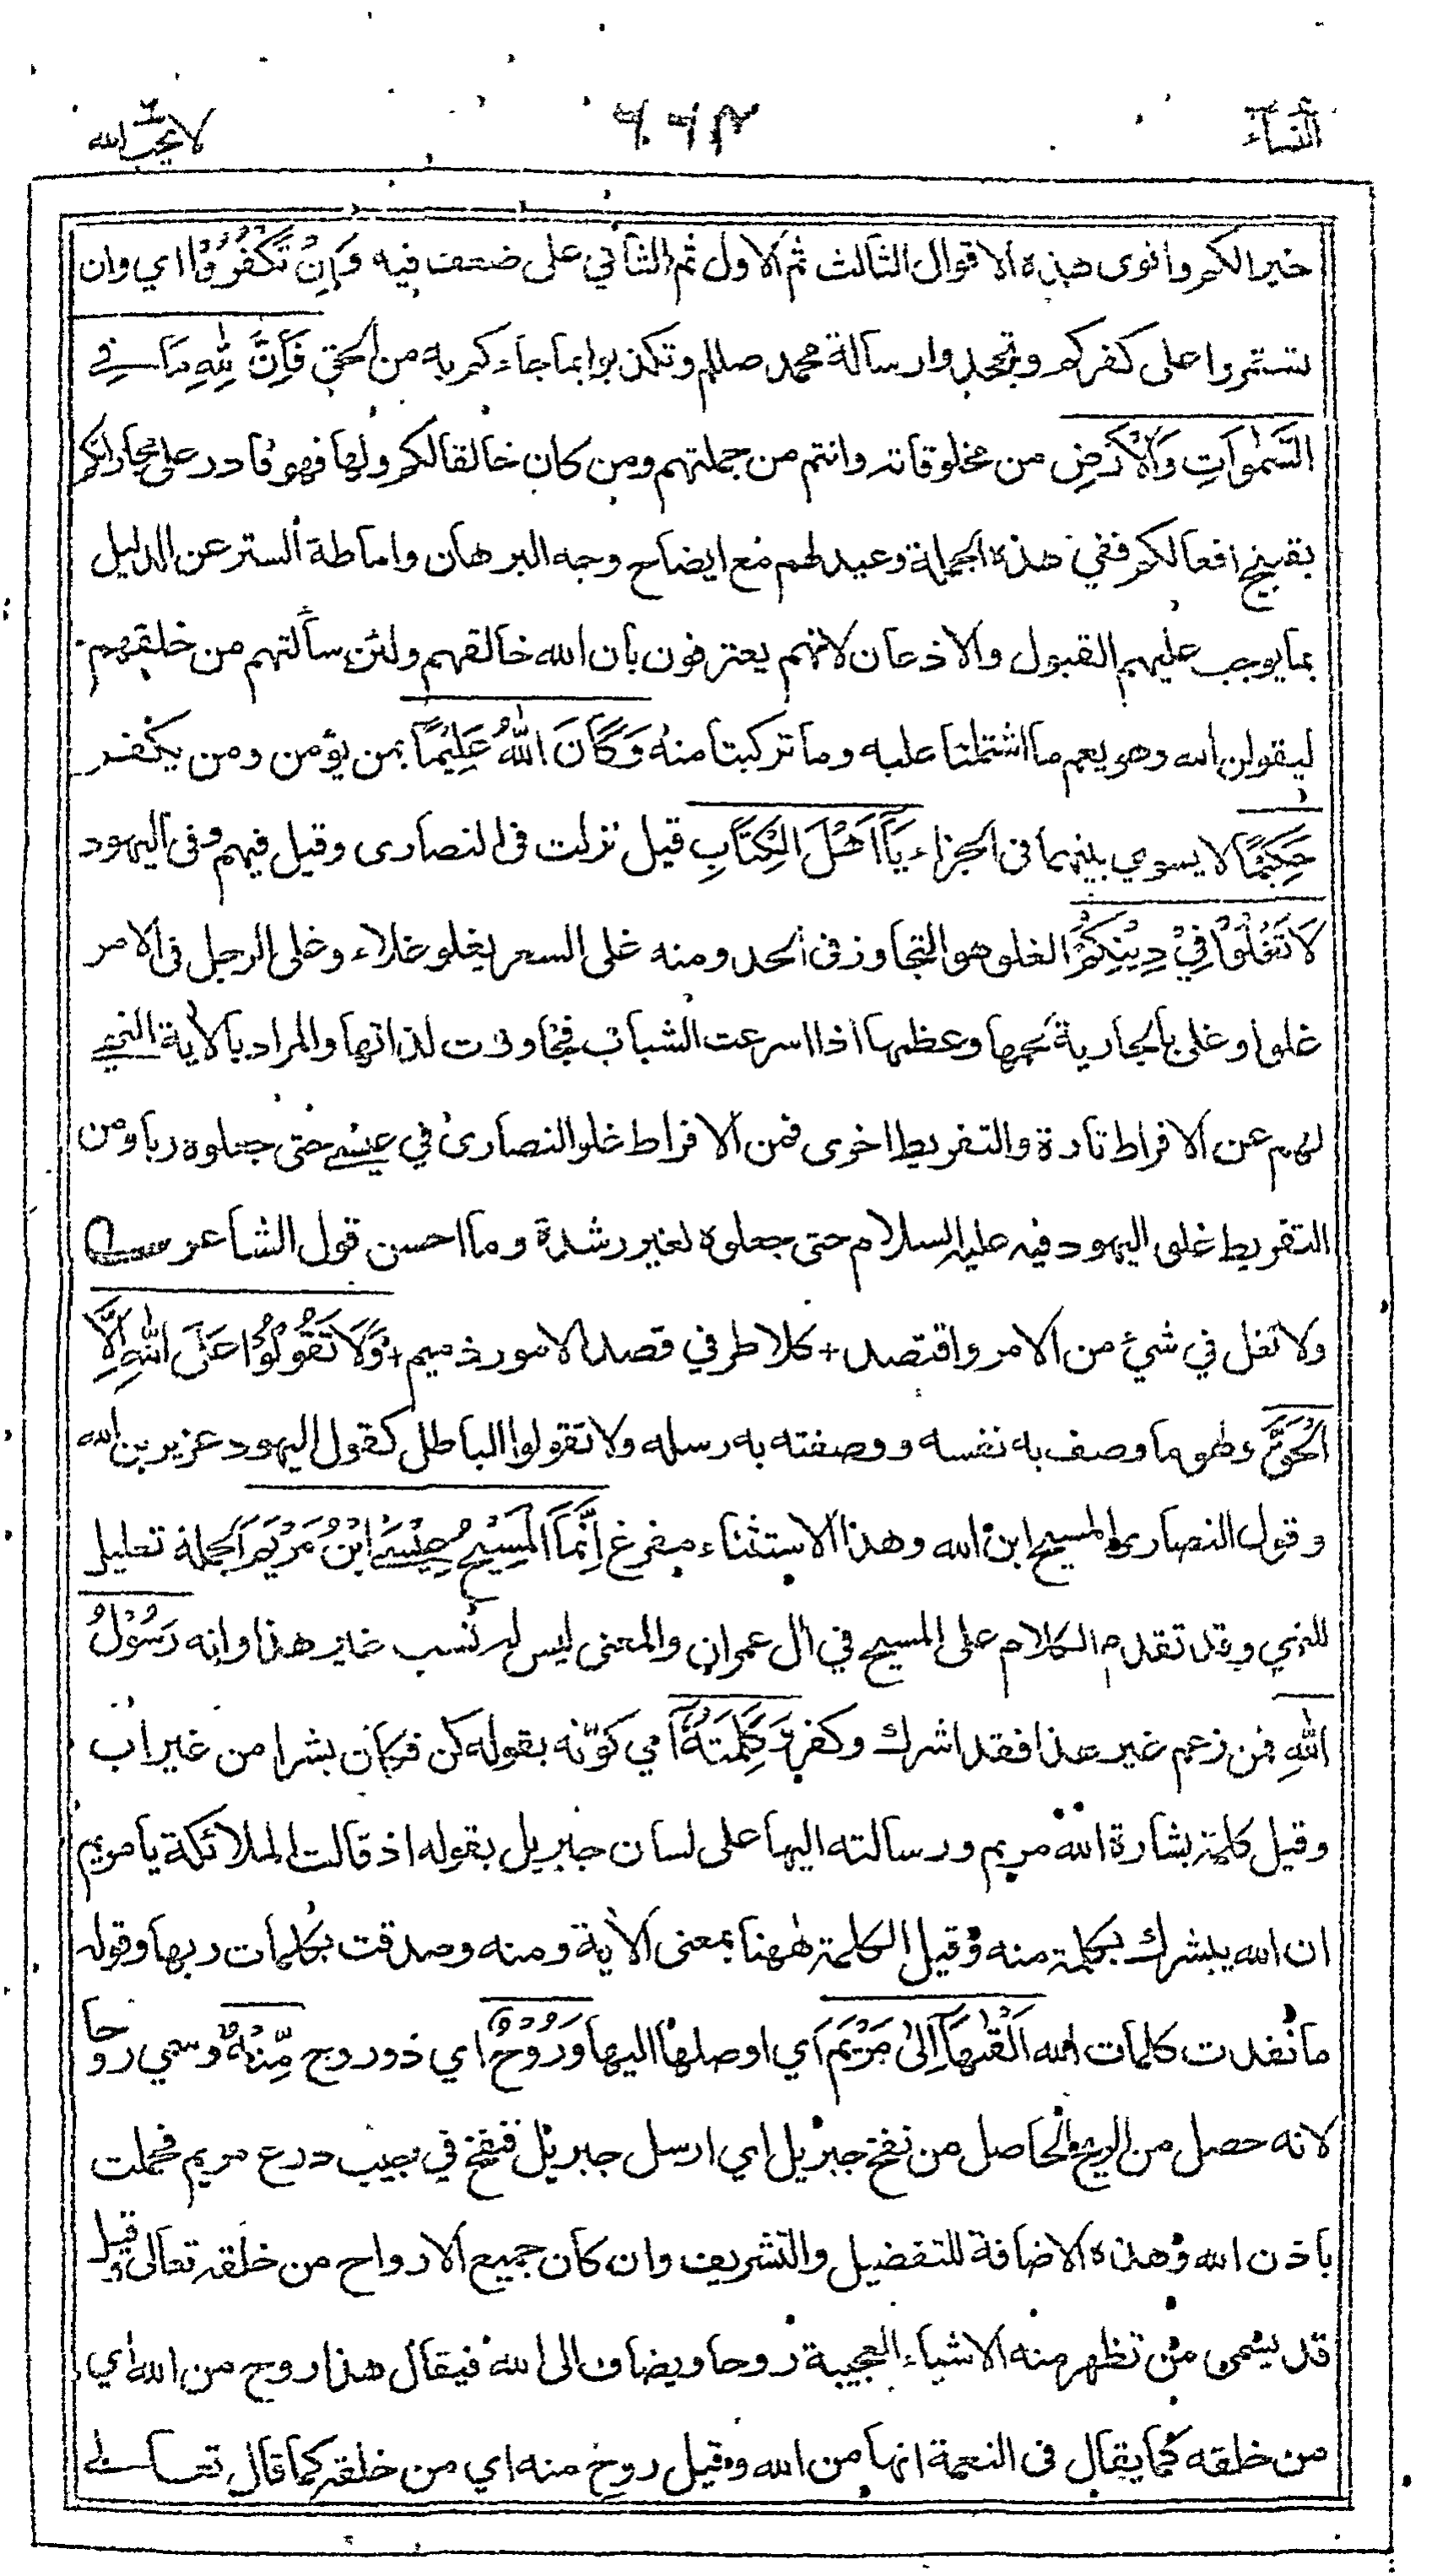 النساء ٦٦٢ لا يحب الله
خيرا لكم واقوى هذه الاقوال الثالث ثم الاول ثم الثاني على ضعف فيه وَاِنْ تَكْفُرُوْا اي وان
تستمروا على كفركم وتجحدوا رسالة محمد صللم وتكذبوا بما جاءكم به من الحق فَاِنَّ لِلّٰهِ مَا فِي
السَّمٰوَاتِ وَالْاَرْضِ من مخلوقاته وانتم من جملتهم ومن كان خالقا لكم ولها فهو قادر على مجازاتكم
بقبيح افعالكم ففي هذه الجملة وعيد لهم مع ايضاح وجه البرهان واماطة الستر عن الدليل
بما يوجب عليهم القبول والاذعان لانهم يعترفون بان الله خالقهم ولئن سألتهم من خلقهم
ليقولن الله وهو يعم ما اشتملتا عليه وما تركبتا منه وَكَانَ اللّٰهُ عَلِيْمًا بمن يؤمن ومن يكفر
حَكِيْمًا لا يسوي بينهما في الجزاء يَآ اَهْلَ الْكِتَابِ قيل نزلت فى النصارى وقيل فيهم وفى اليهود
لَا تَغْلُوْا فِيْ دِيْنِكُمْ الغلو هو التجاوز فى الحد ومنه غلى السعر يغلو غلاء وغلى الرجل فى الامر
غلوا وغلى بالجارية لحمها وعظمها اذا اسرعت الشباب فجاوزت لذاتها والمراد بالأية النهي
لهم عن الافراط تارة والتفريط اخرى فمن الافراط غلو النصارى في عيسى حتى جعلوه ربا ومن
التفريط غلو اليهود فيه عليه السلام حتى جعلوه لغير رشدة وما احسن قول الشاعر
ولا تغل في شيء من الامر واقتصد + كلا طرفي قصد الامور ذميم + وَلَا تَقُوْلُوْا عَلَى اللّٰهِ اِلَّا
الْحَقَّ وهو ما وصف به نفسه ووصفته به رسله ولا تقولوا الباطل كقول اليهود عزير بن الله
وقول النصارى المسيح ابن الله وهذا الاستثناء مفرغ اِنَّمَا الْمَسِيْحُ عِيْسَى ابْنُ مَرْيَمَ الجملة تعليل
للنهي وقد تقدم الكلام على المسيح في ال عمران والمعنى ليس له نسب غير هذا وانه رَسُوْلُ
اللّٰهِ فمن زعم غير هذا فقد اشرك وكفر وَكَلِمَتُهٗ اي كوّنه بقوله كن فكان بشرا من غير اب
وقيل كلمته بشارة الله مريم ورسالته اليها على لسان جبريل بقوله اذ قالت الملائكة يا مريم
ان الله يبشرك بكلمة منه وقيل الكلمة ههنا بمعنى الأية ومنه وصدقت بكلمات ربها وقوله
ما نفدت كلمات الله اَلْقٰهَا اِلٰى مَرْيَمَ اي اوصلها اليها وَرُوْحٌ اي ذو روح مِّنْهُ وسمي روحا
لانه حصل من الريح الحاصل من نفخ جبريل اي ارسل جبريل فنفخ في جيب درع مريم فحملت
باذن الله وهذه الاضافة للتفضيل والتشريف وان كان جميع الارواح من خلقه تعالى وقيل
قد يسمى من تظهر منه الاشياء العجيبة روحا ويضاف الى الله فيقال هذا روح من الله اي
من خلقه كما يقال فى النعمة انها من الله وقيل روح منه اي من خلقه كما قال تعالى